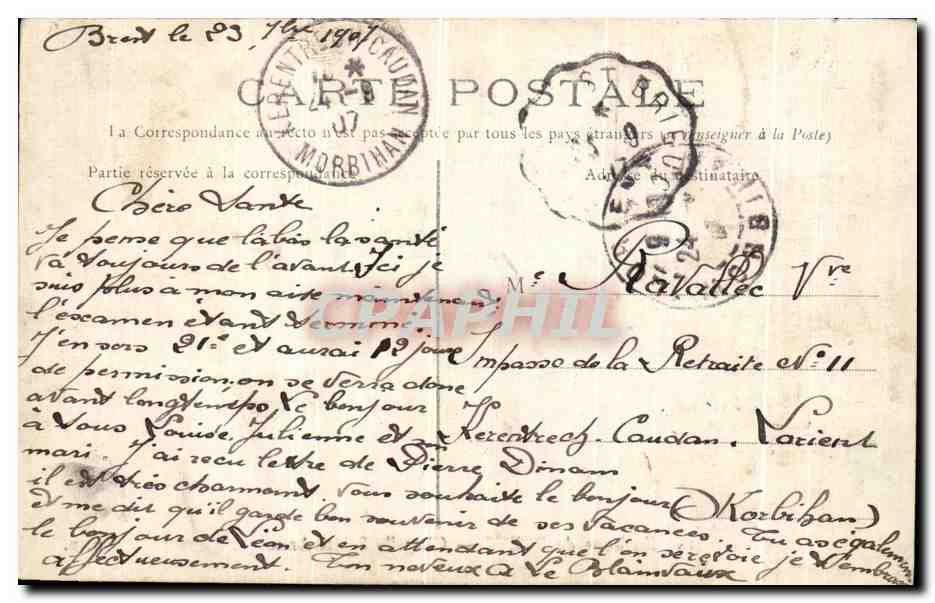 Brest le 23 7bre 1907
KERENTRECH CAUDAN
MORBIHAN
07
CARTE POSTALE
ST BRIEUC
La Correspondance au recto n'est pas acceptée par tous les pays étrangers (Se renseigner à la Poste)
Partie réservée à la correspondance
Adresse du destinataire
Chère Tante
Je pense que là bas la santé
va toujours de l'avant Ici je
suis plus à mon aise maintenant
l'examen étant terminé.
J'en sors 21e et aurai 12 jours
de permission, on se verra donc
avant longtemps Le bonjour
à vous Louise, Julienne et son
mari. J'ai reçu lettre de Pierre Dinam
il est très charmant vous souhaite le bonjour
et me dit qu'il garde bon souvenir de ses vacances. Tu as également
le bonjour de Léon et en attendant que l'on se revoie je t'embrasse
affectueusement. Ton neveux A Le
Me Ravallec Vve
Impasse de la Retraite No 11
Kerentrech-Caudan. Lorient
(Morbihan)
CPAPHIL